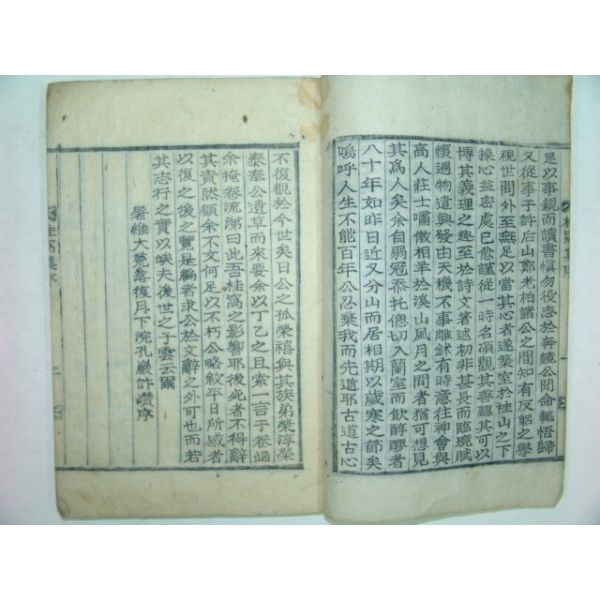 足以事親而讀書慎勿役志於奔競公聞命輒悟歸
又從事于許后山鄭老柏諸公之間知有反躬之學
視世間外至無足以當其心者遂築室於桂山之下
操心益密處己愈謹從一時名碩觀其善聽其可以
博其義理之趣至於詩文著述初非其長而臨琬賦
懷遇物道興發由天機不事雕鉥有時意往神會與
高人莊士嘯傲相羊於溪山風月之間者猶可想見
其為人矣余自弱冠忝托偲切入蘭室而飲醇醪者
八十年如昨日近又分山而居相期以歲寒之節矣
嗚呼人生不能百年公忍棄我而先道耶古道古心
桂窩集序
一
不復覩於今世矣日公之孤榮禧與其族弟榮淳榮
泰奉公遺草而來要余以丁乙之且索一言于卷端
余掩卷流涕曰此吾桂窩之影響耶後死者不得辭
其責然顧余不文何足以不朽公略敘平日所感者
以復之後之覽是編者求公於文辭之外可也而若
其志行之實以竢夫後世之子雲云爾
屠維大荒落復月下浣孔巖許巑序
桂窩集序
二